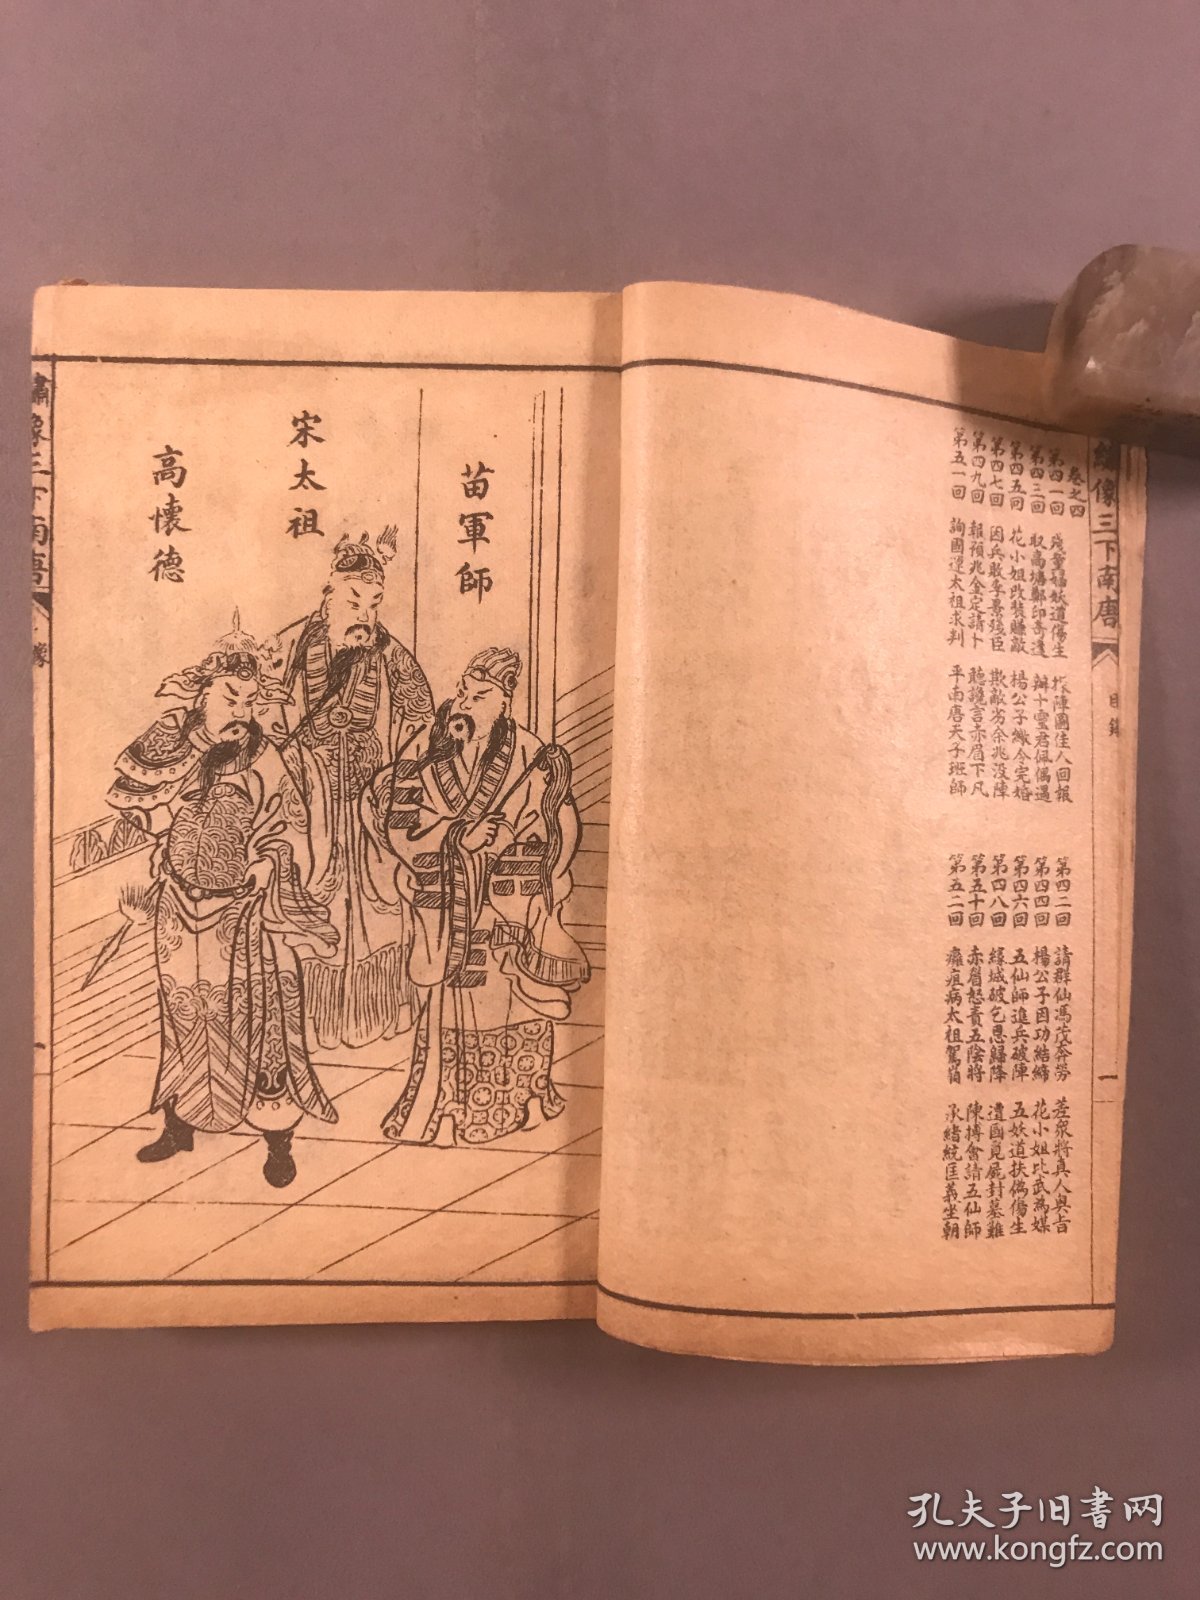 繡像三下南唐
目錄
一
卷之四
第四一回 殘童媼妖道傷生 佳人回報
第四二回 請群仙馮茂奔勞 差眾將真人奧旨
第四三回 取高塘鄭印奇逢 君佩偶遇
第四四回 楊公子因功結締 花小姐比武為媒
第四五回 花小姐改裝賺敵 楊公子緻令完婚
第四六回 五仙師進兵破陣 五妖道扶偽傷生
第四七回 因兵敗李景殘臣 欺敵劣余兆沒陣
第四八回 緣城破乞恩歸降 遭國覓屍封墓難
第四九回 報預兆金定請卜 聽讒言赤眉下凡
第五十回 赤眉怒責五陰將 陳摶會請五仙師
第五一回 詢國運太祖求判 平南唐天子班師
第五二回 癰疽病太祖駕崩 承緒統匡義坐朝
苗軍師
宋太祖
高懷德
繡像三下南唐
像
一
孔夫子旧书网
www.kongfz.com